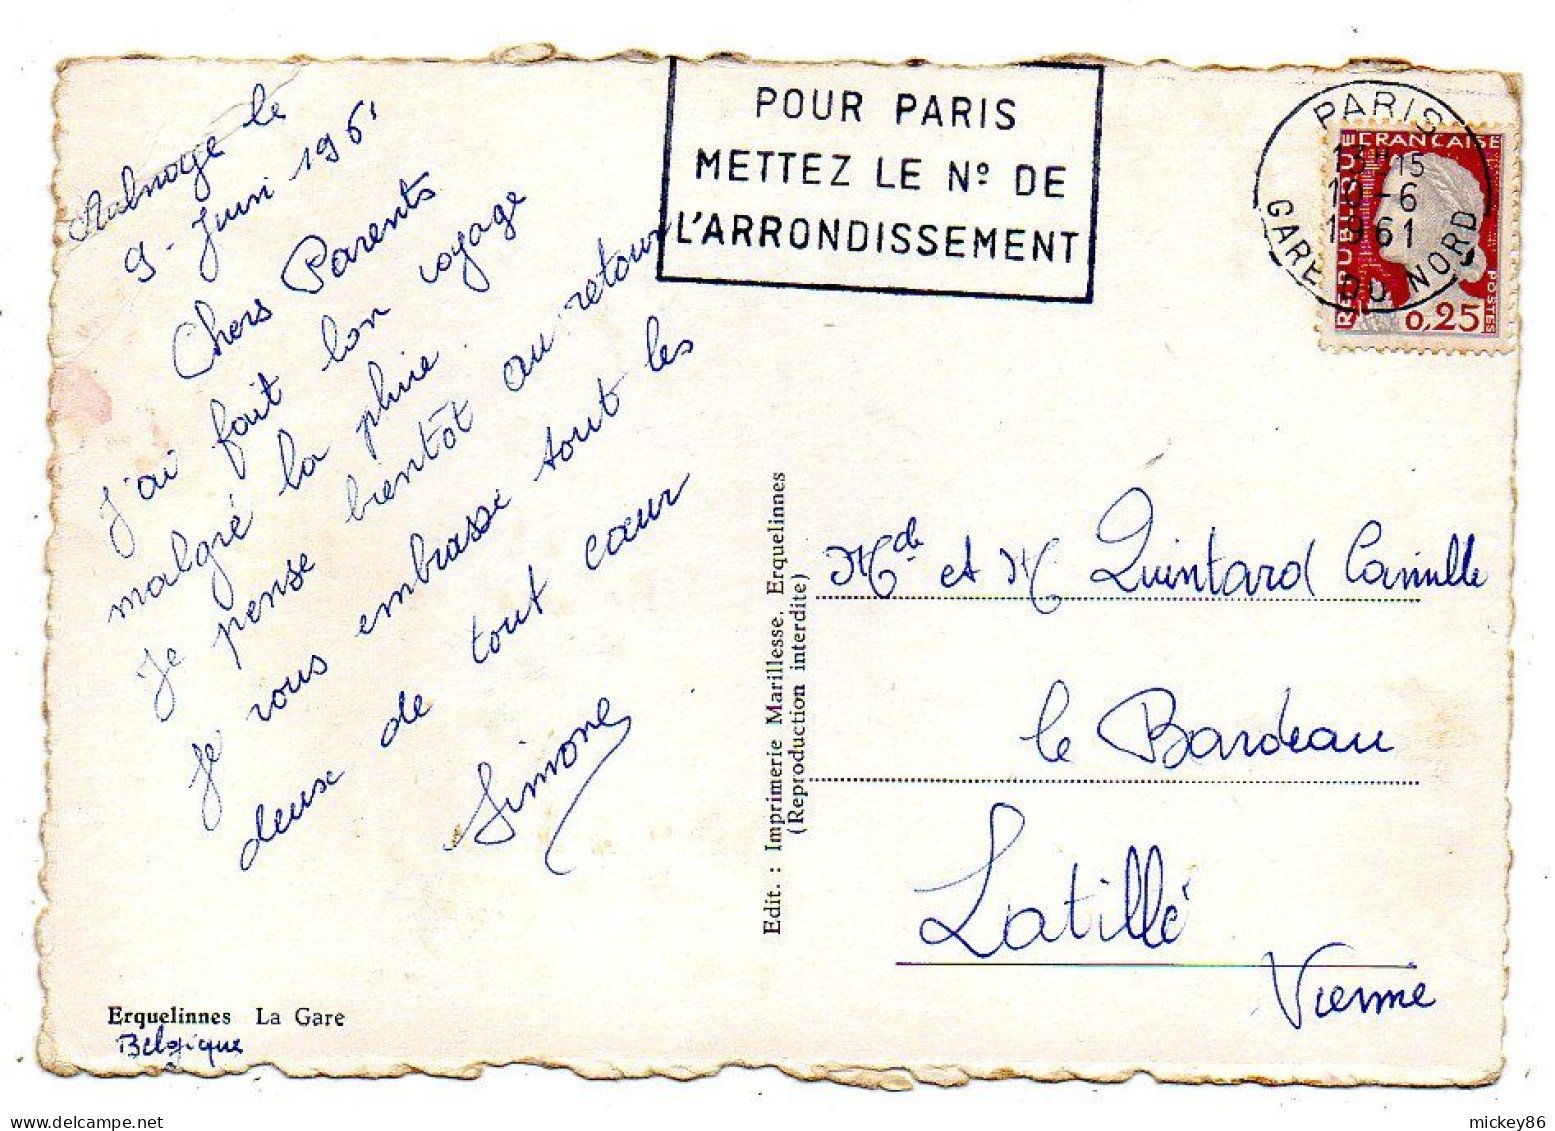 Aulnoye le
9 - Juin 1961
Chers Parents
J'ai fait bon voyage
malgré la pluie.
Je pense bientôt au retour
Je vous embrasse tout les
deux de tout cœur
Simone
Erquelinnes La Gare
Belgique
Edit. : Imprimerie Marillesse, Erquelinnes
(Reproduction interdite)
POUR PARIS
METTEZ LE Nº DE
L'ARRONDISSEMENT
PARIS
13H15
10-6
1961
GARE DU NORD
REPUBLIQUE FRANÇAISE
POSTES
0,25
Mde et M Quintard Camille
le Bardeau
Latillé
Vienne
mickey86